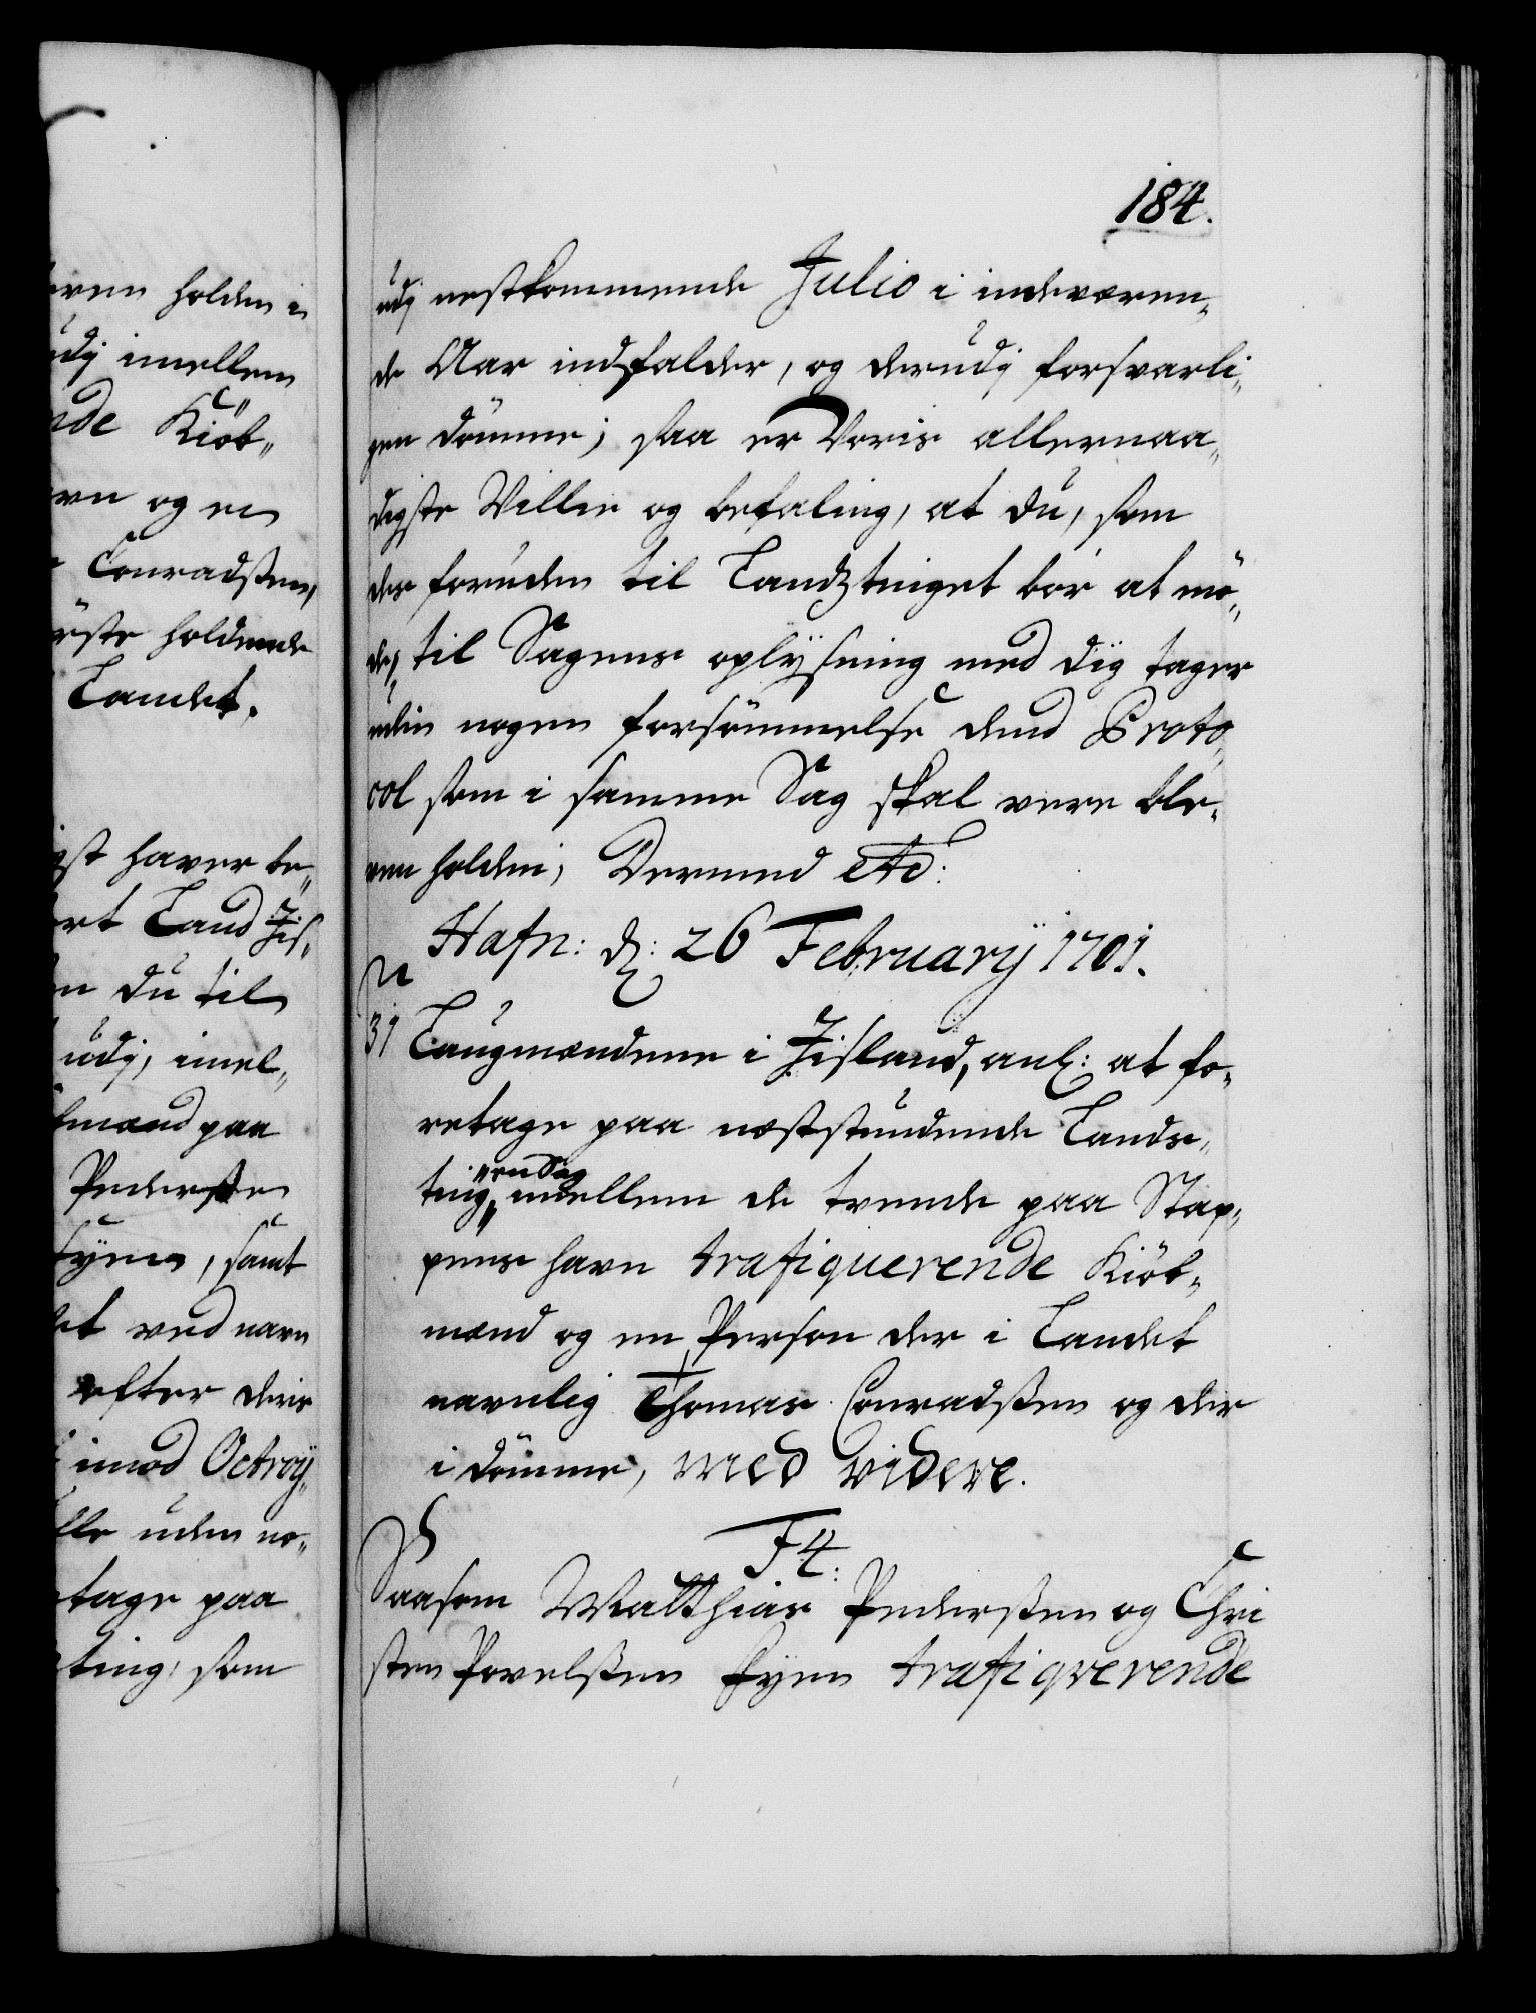 ven holden i
udj imellem
nde Kiöb„
vn og en
Conradssen,
rste holdende
Landet.
st haver be„
rt Land Jis„
n du til
udj, imel„
mænd paa
Pederssen
Fyen, samt
et ved navn
efter deris
imod Octroy„
lle uden no„
tage paa
ting, som
184.
udj nestkommende Julio i indeværen„
de Aar indfalder, og derudj forsvarli„
gen dömme; saa er Voris allernaa„
digste Villie og befaling, at du, som
der foruden til Landztinget bör at mö„
de, til Sagens oplysning med dig tager
uden nogen forsömmelse dend Proto„
col som i samme Sag skal være ble„
ven holden, Dermed etc:
Hafn: d: 26 February 1701.
N
31 Laugmændene i Jisland, anl: at fo„
retage paa næststundende Lands„
ting en Sag imellem de tvende paa Stap„
pens havn trafiquerende Kiöb„
mænd og en Person der i Landet
navnlig Thomas Conradssen og der
i dömme, med videre.
F4:
Saasom Matthias Pederssen og Chri
sten Povelssen Fyen trafiqverende